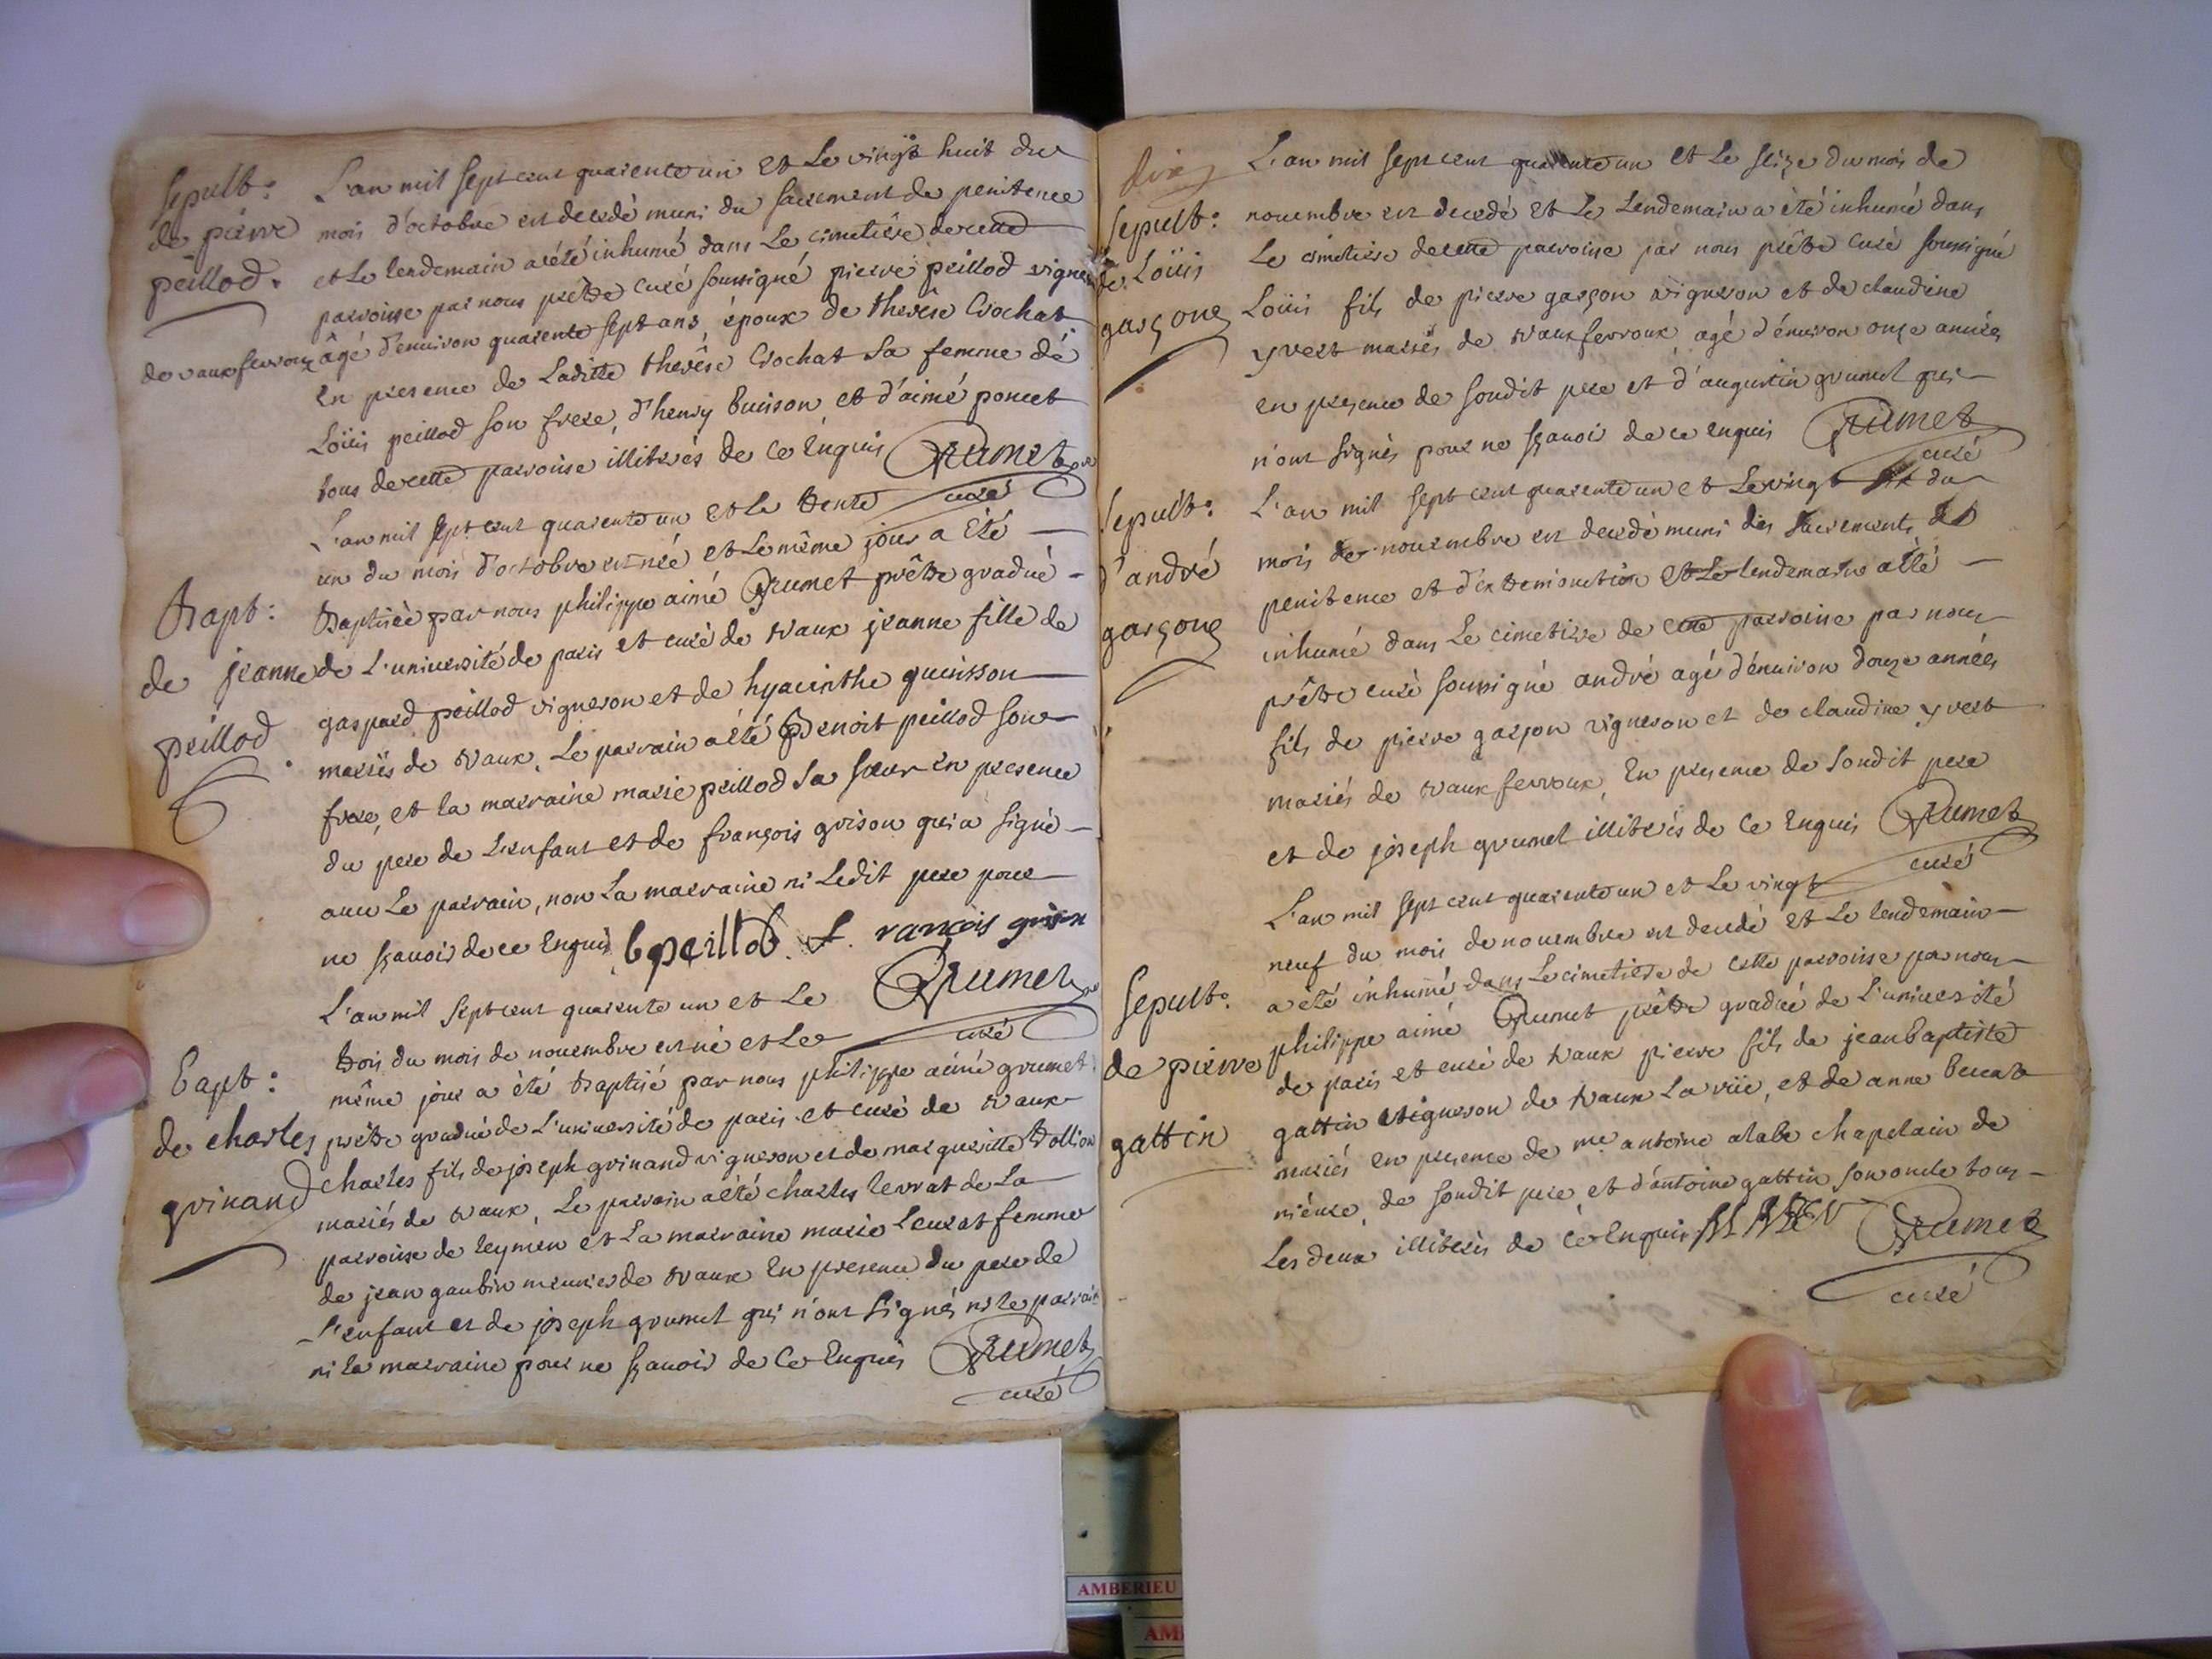 Sepult:
de pierre
peillod.
de vaux fevroux
L'an mil sept cent quarente un et Le vingt huit du
mois d'octobre est decedé muni du sacrement de penitence
et Le lendemain a été inhumé dans Le cimetière de cette
parroisse par nous prêtre curé soussigné pierre peillod vigneron
âgé d'environ quarente sept ans, époux de therêse Crochat
En presence de Laditte therêse Crochat sa femme de
Loüis peillod son frere, d'henry buisson et d'aimé poncet
tous de cette parroisse illiterés de ce Enquis Grumet
curé
Bapt:
de jeanne
peillod
L'an mil sept cent quarente un et Le trente
un du mois d'octobre est née et Le même jour a été
Baptisée par nous philippe aimé Grumet prêtre gradué
de L'université de paris et curé de Vaux jeanne fille de
gaspard peillod vigneron et de hyacinthe quinsson
mariés de Vaux, Le parrain a été Benoit peillod son
frere, et la marraine marie peillod sa soeur En presence
du pere de L'enfant et de françois grison qui a signé
avec Le parrain, non La marraine ni Ledit pere pour
ne sçavoir de ce Enquis b peillod. f. rançois grison
Grumet
curé
Bapt:
de charles
grinand
L'an mil sept cent quarente un et Le
trois du mois de novembre est né et Le
même jour a été Baptisé par nous philippe aimé grumet
prêtre gradué de L'université de paris et curé de Vaux
charles fils de joseph grinand vigneron et de margueritte Tollion
mariés de Vaux, Le parrain a été charles levrat de La
parroisse de leymen et La marraine marie Levrat femme
de jean gaubin meunier de Vaux En presence du pere de
L'enfant et de joseph grumet qui n'ont signés ni le parrain
ni la marraine pour ne sçavoir de Ce Enquis Grumet
curé
dix
Sepult:
de Loüis
garçone
L'an mil sept cent quarente un et Le seize du mois de
novembre est decedé et Le Lendemain a été inhumé dans
Le cimetiere de cette parroisse par nous prêtre curé soussigné
Loüis fils de pierre garçon vigneron et de claudine
yvert mariés de Vaux fevroux, agé d'environ onze années
en presence de sondit pere et d'augustin grumet qui
n'ont signés pour ne sçavoir de ce Enquis Grumet
curé
Sepult:
d'andré
garçone
L'an mil sept cent quarente un et Le vingt du
mois de novembre est decedé muni des sacrements de
penitence et d'extremonction et Le lendemain a été
inhumé dans Le cimetiere de cette parroisse par nous
prêtre curé soussigné andré agé d'environ douze années
fils de pierre garçon vigneron et de claudine yvert
mariés de Vaux fevroux, En presence de sondit pere
et de joseph grumet illiterés de Ce Enquis Grumet
curé
Sepult:
de pierre
gattin
L'an mil sept cent quarente un et Le vingt
neuf du mois de novembre est decedé et Le lendemain
a été inhumé dans Le cimetiere de cette parroisse par nous
philippe aimé Grumet prêtre gradué de L'université
de paris et curé de Vaux pierre fils de jean baptiste
gattin vigneron de Vaux La vüe, et de anne
mariés en presence de me antoine alabe chapelain de
de sondit pere et d'antoine gattin son oncle tous
Les deux illiterés de Ce Enquis Grumet
curé
AMBERIEU
AM